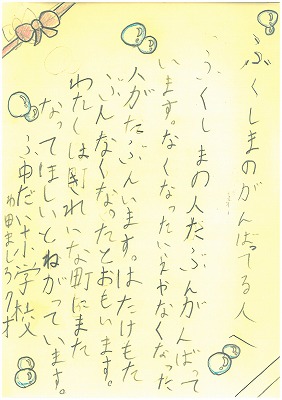 ふくしまのがんばってる人へ
ふくしまの人たぶんがんばって
います。なくなったいえやなくなった
人がたぶんいます。はたけもた
ぶんなくなったとおもいます。
わたしは町きれいな町にまた
なってほしいとねがっています。
小学校
ましろ7才